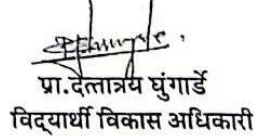 प्रा.दत्तात्रय घुंगार्डे
विद्‌यार्थी विकास अधिकारी